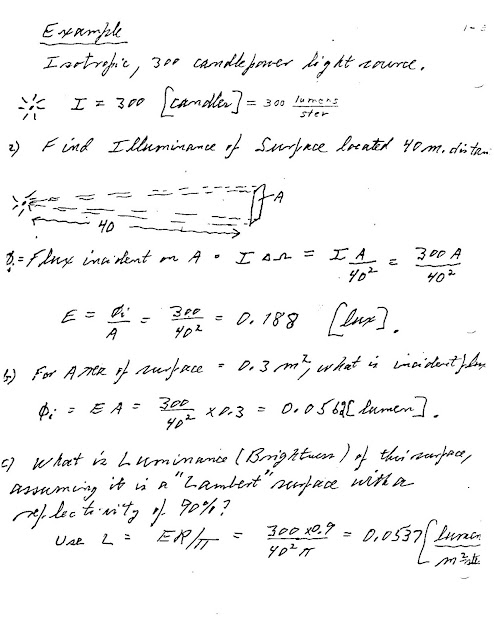 Example
Isotropic, 300 candlepower light source.
I = 300 [candles] = 300 lumens/ster
a) Find Illuminance of Surface located 40 m. distan
A
40
Φi = Flux incident on A = I ΔΩ = I A/40² = 300 A/40²
E = Φi/A = 300/40² = 0.188 [lux].
b) For Area of surface = 0.3 m², what is incident flux
Φi = E A = 300/40² x 0.3 = 0.0562 [lumen].
c) What is Luminance (Brightness) of this surface,
assuming it is a "Lambert" surface with a
reflectivity of 90%?
Use L = ER/π = 300 x 0.9/40² π = 0.0537 [lumen/m² ste